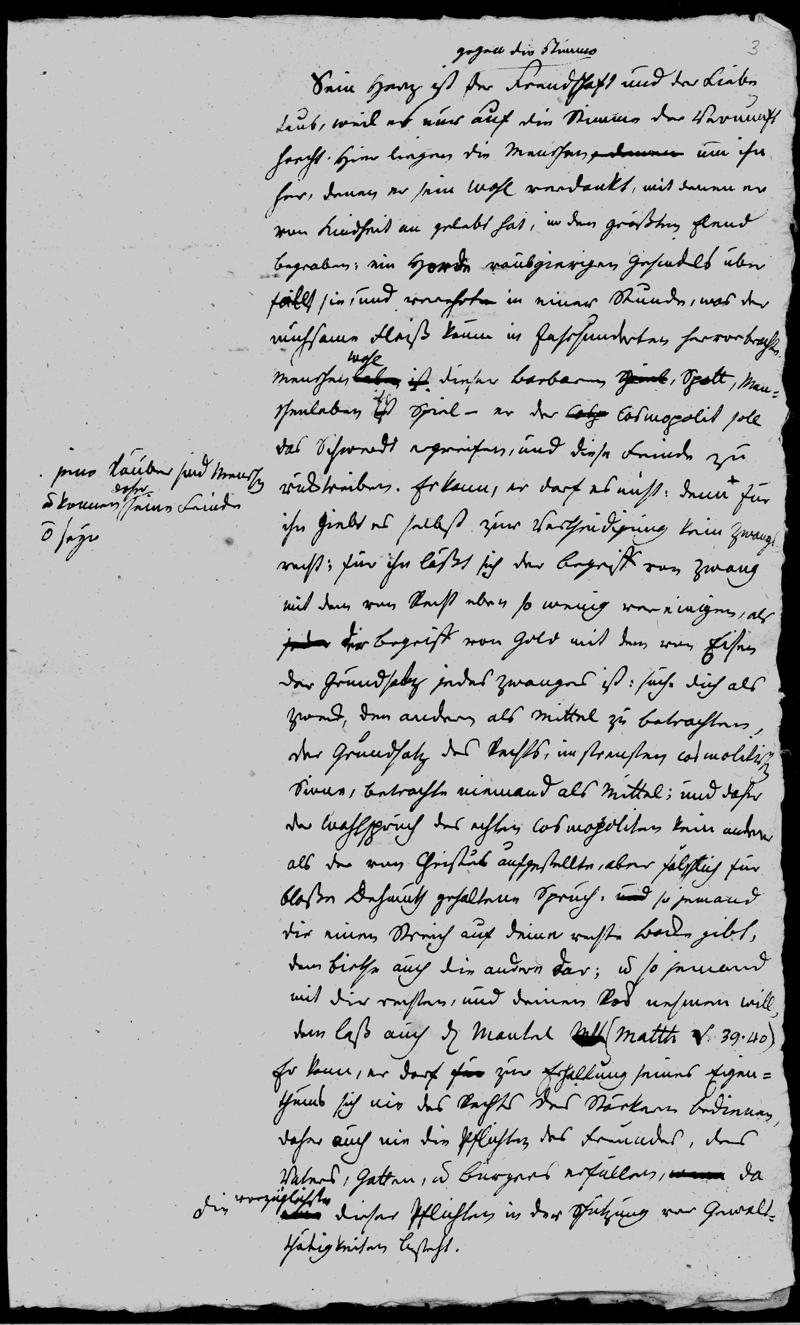 3
gegen die Stimme
Sein Herz ist der Freundschaft und der Liebe
taub, weil er nur auf die Stimme der Vernunft
horcht. Hier liegen die Menschen, denen um ihn
her, denen er sein Wohl verdankt, mit denen er
von Kindheit an gelebt hat, in den größten Elend
begraben; ein Horde raubgierigen Gesindels über
fällt sie, und verzehrte in einer Stunde, was der
mühsame Fleiß kaum in Jahrhunderten hervorbrachte.
wohl
Menschenleben ist dieser Barbaren Spiel, Spott, Men=
schenleben ist Spiel – er der Cosmopolit soll
das Schwerdt ergreifen, und diese Feinde zu
jene Räuber sind Menschen
rücktreiben. Er kann, er darf es nicht: denn + für
daher
u können seine Feinde
ihn giebt es selbst zur Vertheidigung kein Zwangs
seyn
recht; für ihn läßt sich der Begriff von Zwang
mit dem von Recht eben so wenig vereinigen, als
jeder der Begriff von Gold mit dem von Eisen
der Grundsatz jedes Zwanges ist: suche dich als
Zweck, den andern als Mittel zu betrachten,
der Grundsatz des Rechts, im strengsten cosmolitischen
Sinne, betrachte niemand als Mittel; und daher
der Wahlspruch des echten Cosmopoliten kein anderer
als der von Christus aufgestellte, aber fälschlich für
bloßen Dehmuth gehaltene Spruch. und so jemand
dir einen Streich auf deine rechte Backe gibt,
dem biethe auch die andere dar; u so jemand
mit dir rechten, und deinen Rock nehmen will,
dem laß auch den Mantel (Matth V. 39.40)
Er kann, er darf für zur Erhaltung seines Eigen=
thums sich nie des Rechts des Stärkern bedienen,
daher auch nie die Pflichten des Freundes, des
Vaters, Gatten, u Bürgers erfüllen, wenn da
die vorzüglichste
dieser Pflichten in der Schützung vor Gewalt=
thätigkeiten besteht.